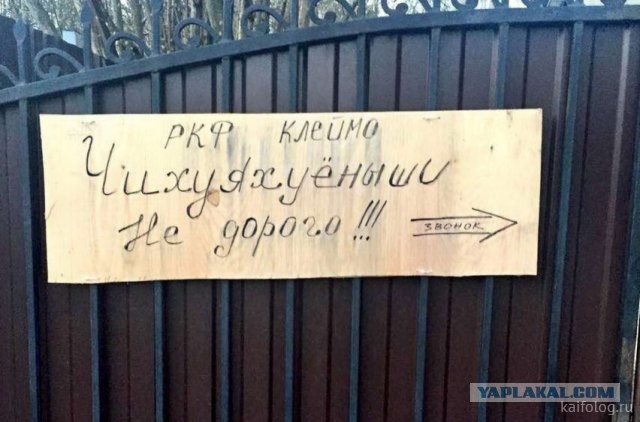 РКФ клеймо
Чихуяхуёныши
Не дорого!!!
звонок
YAPLAKAL.COM
kaifolog.ru